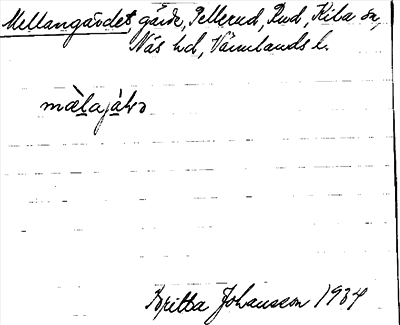 Mellangärdets gärde, Pellerud, Rud, Kila sn,
Näs hd, Värmlands l.
màlajàḷɷ
Britta Johansson 1934